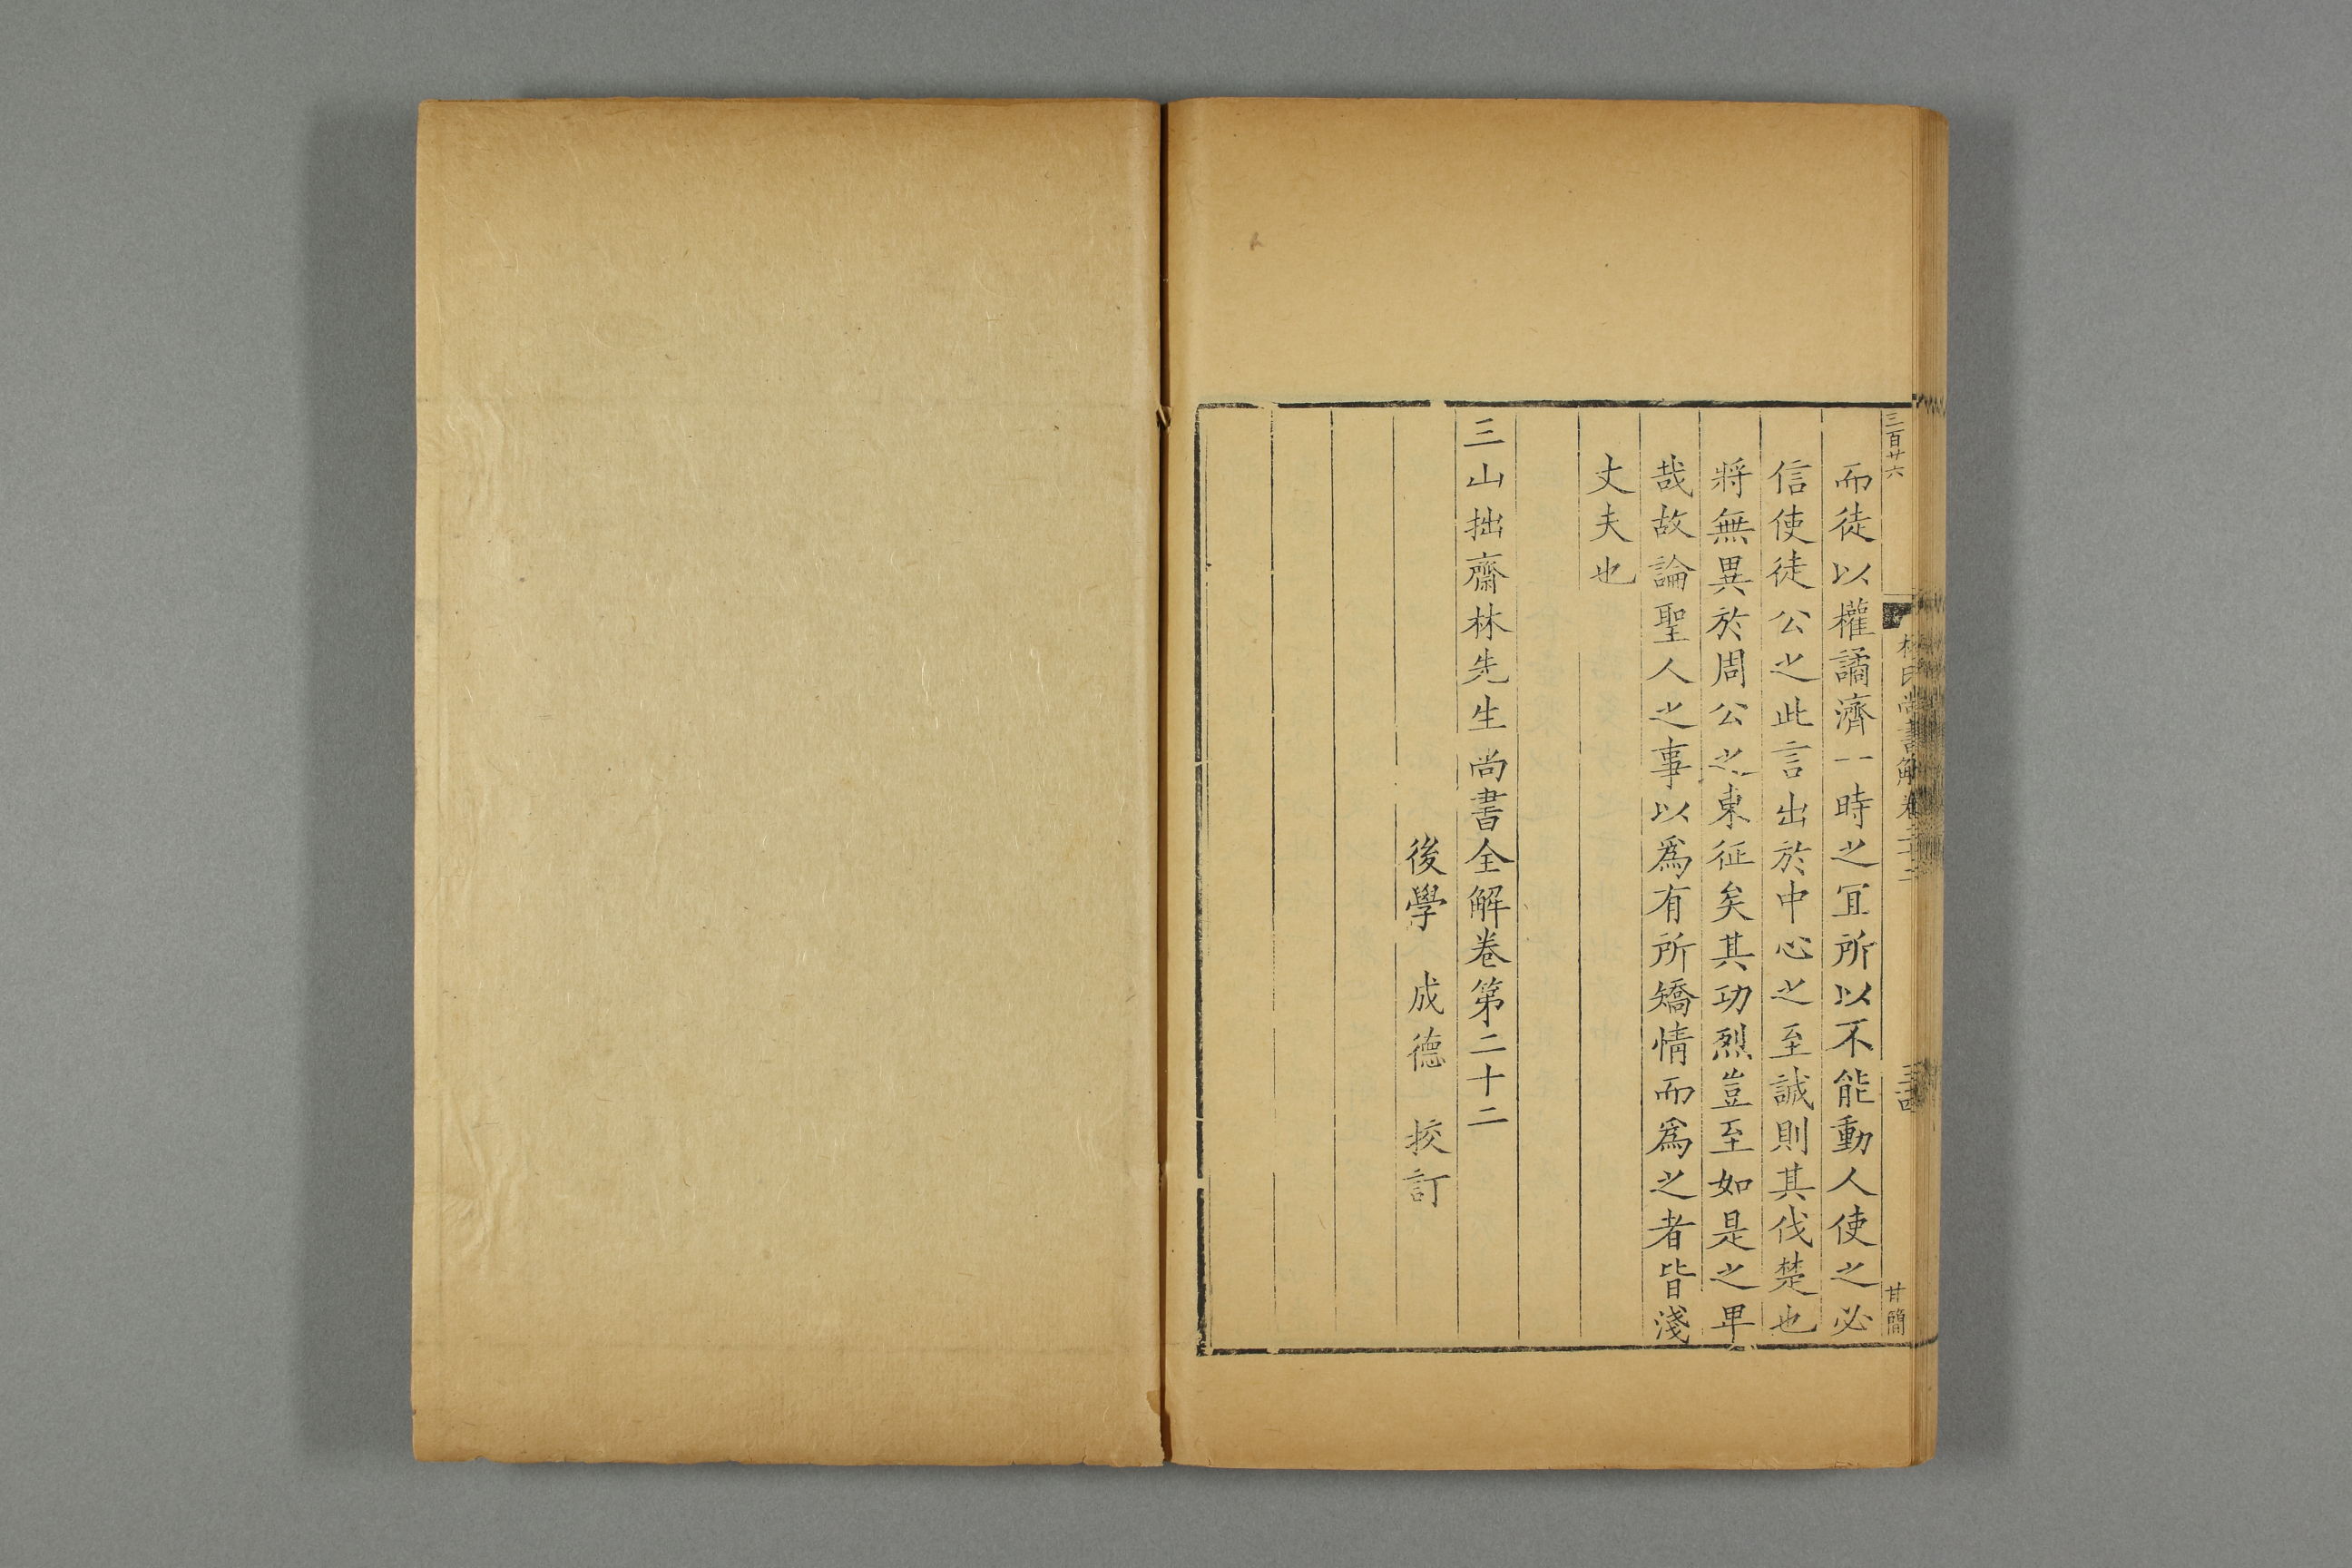 三百廿六
林氏尚書解卷二十二
三四
甘簡
而徒以權譎濟一時之冝所以不能動人使之必
信使徒公之此言出於中心之至誠則其伐楚也
將無異於周公之東征矣其功烈豈至如是之畢
哉故論聖人之事以爲有所矯情而爲之者皆淺
丈夫也
三山拙齋林先生尚書全解卷第二十二
後學 成德 挍訂